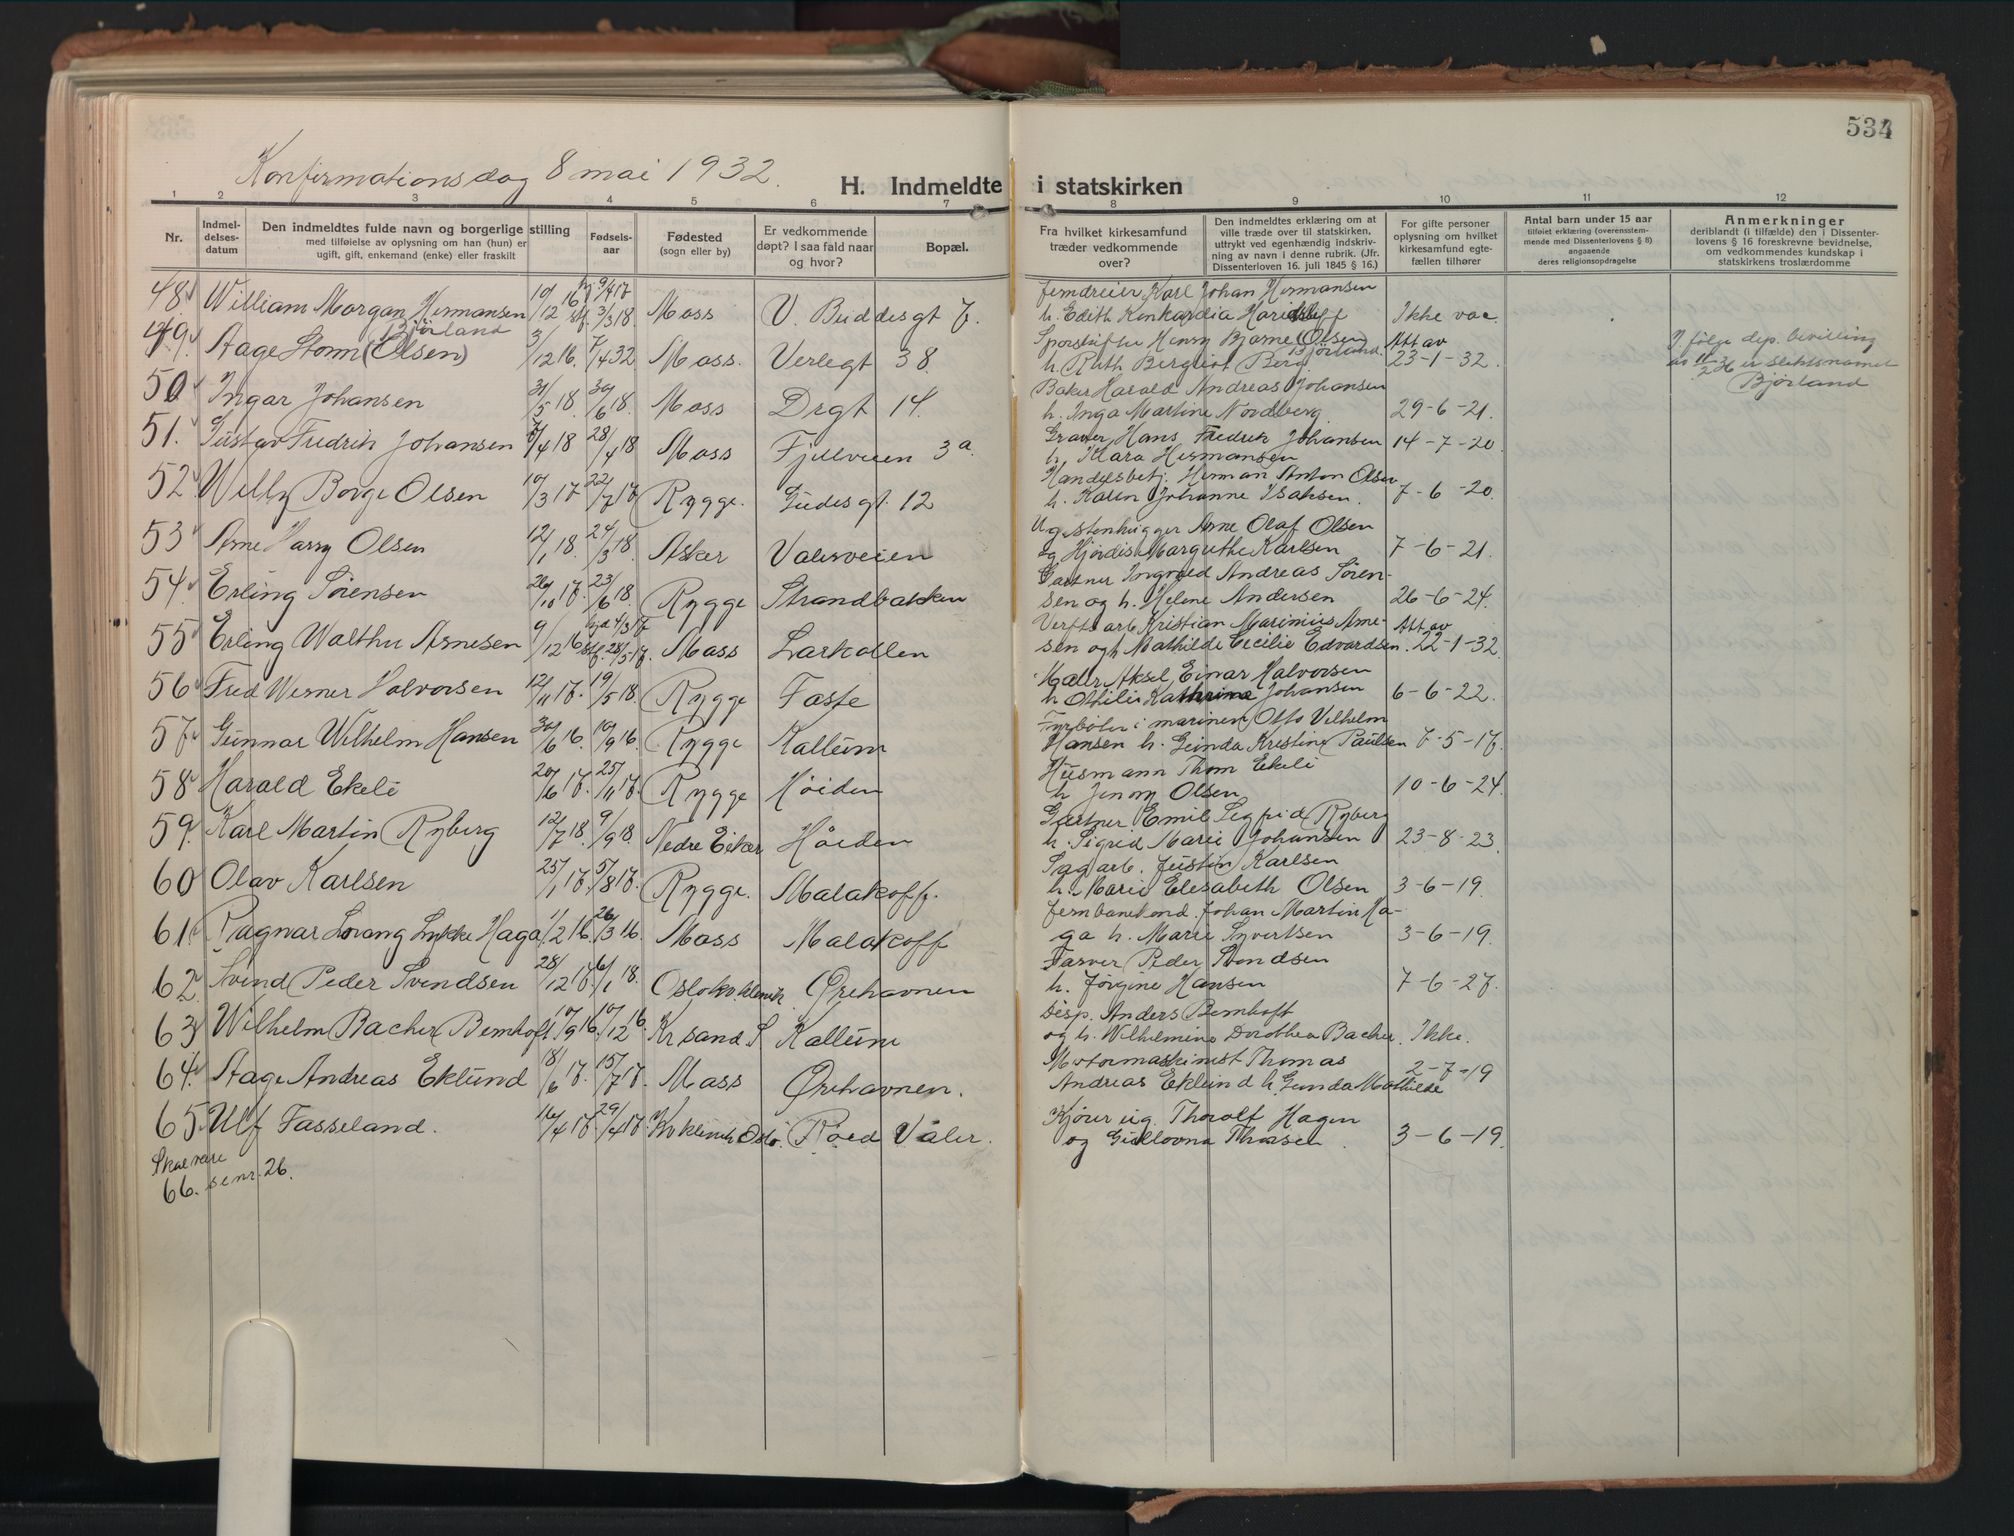 534
Konfirmationsdag 8 mai 1932.
H. Indmeldte i statskirken
1 2 3 4 5 6 7 8 9 10 11 12
Nr.
Indmel-
delses-
datum
Den indmeldtes fulde navn og borgerlige stilling
med tilføielse av oplysning om han (hun) er
ugift, gift, enkemand (enke) eller fraskilt
Fødsels-
aar
Fødested
(sogn eller by)
Er vedkommende
døpt? I saa fald naar
og hvor?
Bopæl.
Fra hvilket kirkesamfund
træder vedkommende
over?
Den indmeldtes erklæring om at
ville træde over til statskirken,
uttrykt ved egenhændig indskriv-
ning av navn i denne rubrik. (Jfr.
Dissenterloven 16. juli 1845 § 16.)
For gifte personer
oplysning om hvilket
kirkesamfund egte-
fællen tilhører
Antal barn under 15 aar
tilføiet erklæring (overensstem-
mende med Dissenterlovens § 8)
angaaende
deres religionsopdragelse
Anmerkninger
deriblandt (i tilfælde) den i Dissenter-
lovens § 16 foreskrevne bevidnelse,
om vedkommendes kundskap i
statskirkens troslærdomme
48 William Morgan Hermansen 10/12 16 hj 9/4 17 stf. 3/3 18. Moss V. Buddesgt 7. Jerndreier Karl Johan Hermansen
h. Edith Konkardia Ikke vac.
Bjørland
49. Aage Storm (Olsen) 3/12 16. 7/4 32 Moss. Verlegt 38. Henry Bjarne (Olsen) Att av
Bjørland.
h. Ruth Bergliot Berg 23-1-32.
I følge dep. bevilling
av 11/2-36 er slektsnamnet
Bjørland
50 Ingar Johansen 31/5 18. 30/6 18. Moss Drgt 14. Baker Harald Andreas Johansen
h. Inga Martine Nordberg 29-6-21.
51. Gustav Fredrik Johansen /4 18 28/4 18 Moss Fjellveien 3a. Graver Hans Fredrik Johansen 14-7-20
h. Klara Hermansen
52 Willy Borge Olsen 10/3 17 22/7 17 Rygge. Gudesgt. 12 Handelsbetj. Herman Anton Olsen
h. Karen Johanne Isaksen. 7-6-20.
53 Arne Harry Olsen 12/1 18. 24/3 18. Asker Valerveien Ug. stenhugger Arne Olaf Olsen
og Hjørdis Margrethe Karlsen 7-6-21.
54. Erling Sørensen 26/10 17. 23/6 18. Rygge Strandbakken Gartner Ingvald Andreas Søren-
sen og h. Helene Andersen 26-6-24.
55 Erling Walther Arnesen 9/12 16 hjd 4/3 17 stf. 28/5 17. Moss Larkollen Verftsarb Kristian Marinius Arne- Att av
sen og h Mathilde Cecilie Edvardsen. 22-1-32.
56 Fred Werner Halvorsen 12/11 17. 19/5 18. Rygge Faste Maler Aksel Einar Halvorsen
h Othilie Kathrine Johansen 6-6-22.
57 Gunnar Wilhelm Hansen 30/6 16. 10/9 16. Rygge Kallum Fyrbøter i marinen Otto Vilhelm
Hansen h. Gunda Kristine Paulsen 7-5-17.
58 Harald Ekeli 20/6 17. 25/11 17. Rygge Høiden Husmann Thom Ekeli
h Jenny Olsen 10-6-24.
59. Karl Martin Ryberg 12/7 18. 9/9 18. Nedre Eiker Høiden Gartner Emil Sigfrid Ryberg
h. Sigrid Marie Johansen 23-8-23.
60 Olav Karlsen 25/1 17. 5/8 17. Rygge. Malakoff. Sagarb. Justin Karlsen
h. Marie Elesabeth Olsen 3-6-19
61 Ragnar Lorang Lykke Haga 1/2 16. 26/3 16. Moss Malakoff Jernbanekond. Johan Martin Ha-
ga h. Marie Syvertsen 3-6-19.
62 Svend Peder Svendsen 28/12 17. 6/1 18. Oslo kv.klinik Ørehavnen Farver Peder Svendsen
h. Jørgine Hansen 7-6-27.
63 Wilhelm Bacher Bernhoft. 10/9 16. 10/12 16. Kr.sand S. Kallum Disp. Anders Bernhoft
og h. Wilhelmine Dorothea Bacher. Ikke.
64. Aage Andreas Eklund 18/6 17. 15/7 17. Moss Ørehavnen. Motormaskinist Thomas 2-7-19
Andreas Eklund h. Gunda Mathilde
65. Ulf Fasseland. 16/4 17. 29/4 17. Kv klinik Oslo. Roed Våler. Kjører ug. Thorolf Hagen
og Thorsen. 3-6-19.
Skal være
66. se nr. 26.